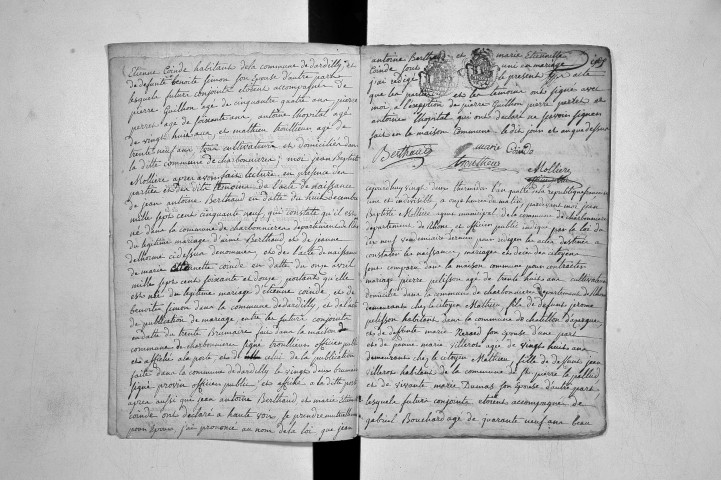 Etienne Coinde habitant de la commune de dardilly, et
de defunte benoite Simon son Epouse d'autre part
lesquels futurs conjoints etoient accompagnés de
pierre Guillon agé de cinquante quatre ans, pierre
agé de soixante ans, antoine thopital agé
de vingt huit ans, et mathieu trouilleux agé de
trente neuf ans tous cultivateurs et domiciliés dans
la ditte commune de charbonnieres; moi jean Baptiste
Molliere après avoir fait lecture en presence des
parties et des dits temoins de l'acte de naissance
de jean antoine Berthaud en datte du huit decembre
mille sept cent cinquante neuf, qui constate qu'il est
né dans la commune de charbonnieres departement du
du legitime mariage d'aimé Berthaud et de jeanne
delhorme cidessus denommé, et de l'acte de naissance
de marie Coinde en datte du onze avril
mille sept cent soixante et douze, portant qu'elle
est née du legitime mariage d'Etienne Coinde et de
benoite Simon dans la commune de dardilly, et de l'acte
de publication de mariage entre les futurs conjoints
en datte du trente Brumaire fait dans la maison
commune de charbonnieres signé trouilleux officier public
et affiché a la porte et de celui de la publication
faite dans la commune de dardilly le vingt deux brumaire
signé provin officier public, et affiché a la ditte porte
après aussi que jean antoine Berthaud et marie
Coinde ont déclaré a haute voix se prendre mutuellement
pour Epoux, j'ai prononcé au nom de la loi que jean
antoine Berthaud et marie Etiennette
Coinde sont unis en mariage
j'ai rédigé le present acte
que les parties et les temoins ont signé avec
moi a l'exception de pierre Guillon pierre et
antoine thopital qui ont déclaré ne savoir signer
fait en la maison commune les dits jour et an que dessus
Berthaud marie Coindo
trouilleux
Molliere
aujourdhuy vingt deux thermidor l'an quatre de la republique francaise
une et indivisible a onze heures du matin pardevant moi jean
Baptiste Molliere agent municipal de la commune de charbonnieres
departement du Rhone et officier public indiqué par la loi du
dix neuf vendemiaire dernier pour rediger les actes destinés a
constater les naissances, mariages et décès des citoyens
sont comparu dans la maison commune pour contracter
mariage pierre pelisson agé de trente huit ans cultivateur
domicilié dans la commune de charbonnieres departement du Rhone
demeurant chez le citoyen Mathieu fils de defunt
pelisson habitant dans la commune de chatillon d'azergue,
et de defunte marie Nerard son epouse d'une part
et de jeanne marie Villerot agée de vingt huit ans
demeurant chez le citoyen Mathieu, fille de deffunt jean
villerot habitant de la commune de st pierre la pallud
et de vivante marie Dumas son Epouse d'autre part,
lesquels futurs conjoints etoient accompagnés de
gabriel Bouchard agé de quarante neuf ans beau